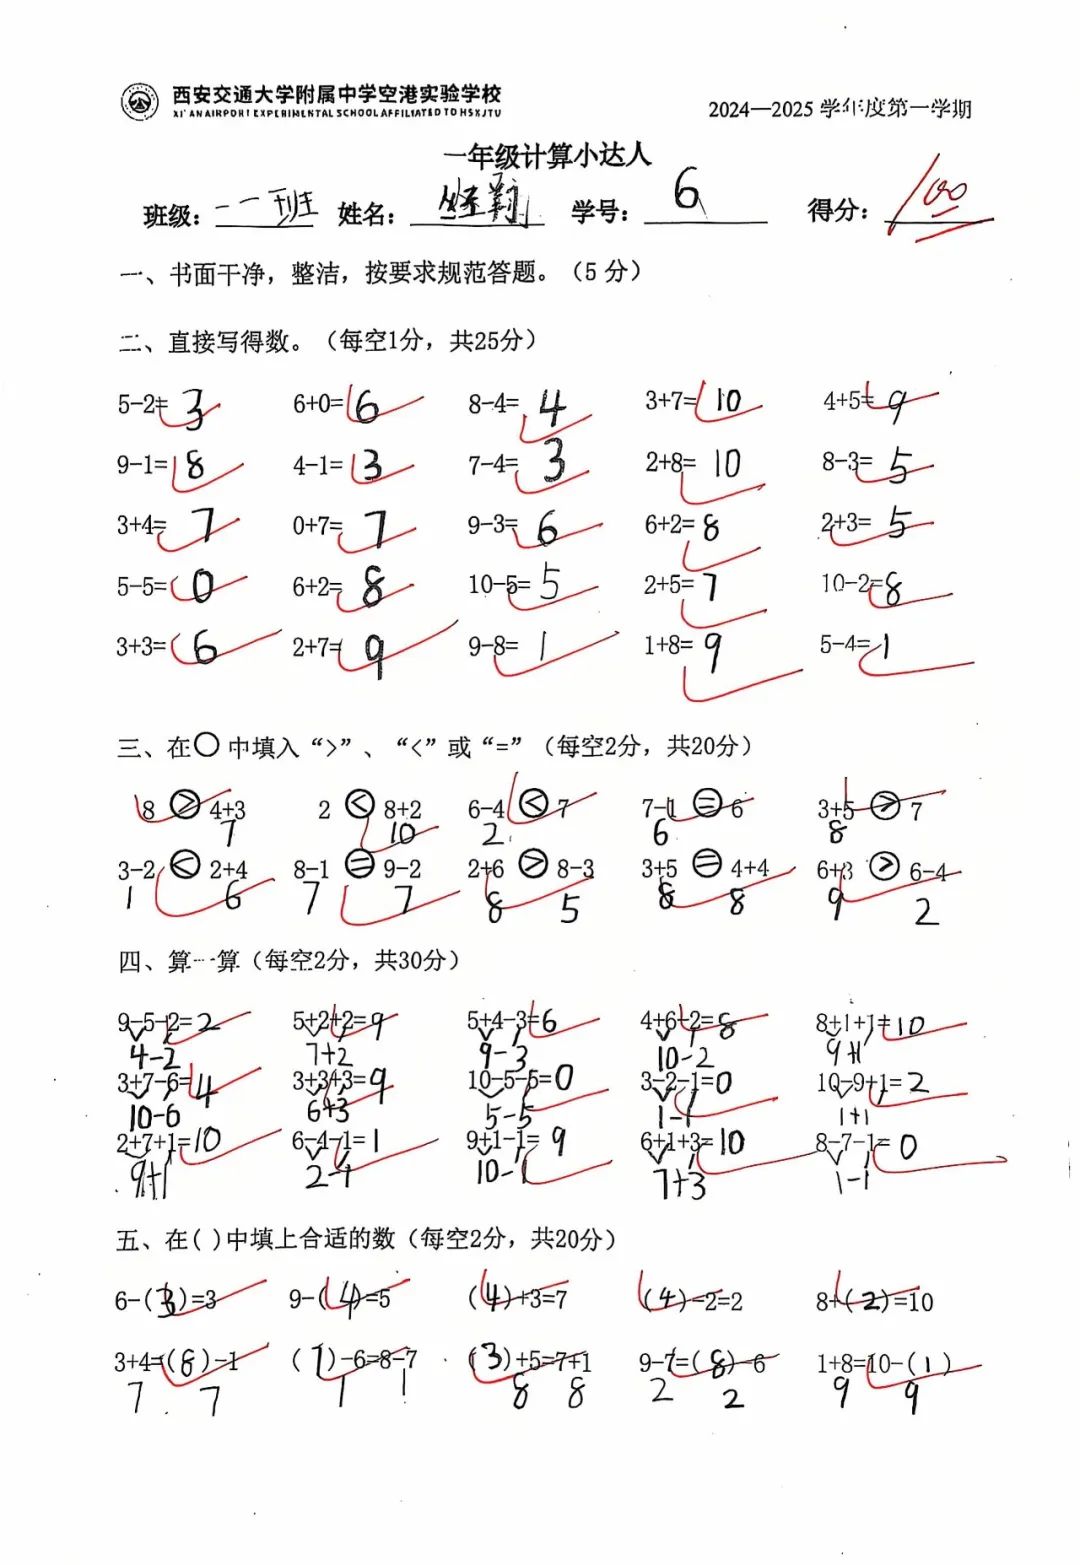 西安交通大学附属中学空港实验学校
XI'AN AIRPORT EXPERIMENTAL SCHOOL AFFILIATED TO HSXJTU
2024—2025 学年度第一学期
一年级计算小达人
班级: 一一班 姓名: 学号: 6 得分: 100
一、书面干净，整洁，按要求规范答题。（5 分）
二、直接写得数。（每空1分，共25分）
5-2=3 6+0=6 8-4=4 3+7=10 4+5=9
9-1=8 4-1=3 7-4=3 2+8=10 8-3=5
3+4=7 0+7=7 9-3=6 6+2=8 2+3=5
5-5=0 6+2=8 10-5=5 2+5=7 10-2=8
3+3=6 2+7=9 9-8=1 1+8=9 5-4=1
三、在○中填入“>”、“<”或“=”（每空2分，共20分）
8 > 4+3 2 < 8+2 6-4 < 7 7-1 = 6 3+5 > 7
7 10 2 6 8
3-2 < 2+4 8-1 = 9-2 2+6 > 8-3 3+5 = 4+4 6+3 > 6-4
1 6 7 7 8 5 8 8 9 2
四、算一算（每空2分，共30分）
9-5-2=2 5+2+2=9 5+4-3=6 4+6-2=8 8+1+1=10
4-2 7+2 9-3 10-2 9+1
3+7-6=4 3+3+3=9 10-5-5=0 3-2-1=0 10-9+1=2
10-6 6+3 5-5 1-1 1+1
2+7+1=10 6-4-1=1 9+1-1=9 6+1+3=10 8-7-1=0
9+1 2-1 10-1 7+3 1-1
五、在( )中填上合适的数（每空2分，共20分）
6-(3)=3 9-(4)=5 (4)+3=7 (4)-2=2 8+(2)=10
3+4=(8)-1 (7)-6=8-7 (3)+5=7+1 9-7=(8)-6 1+8=10-(1)
7 7 1 1 8 8 2 2 9 9